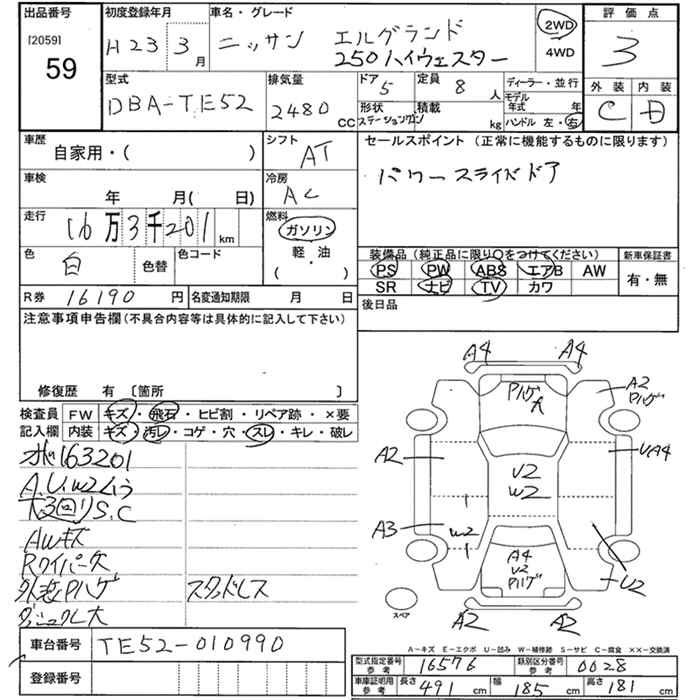 出品番号
[2059]
59
初度登録年月
H23 3月
車名・グレード
ニッサン エルグランド
250ハイウェスター
2WD
4WD
評価点
3
外装 内装
C D
型式
DBA-TE52
排気量
2480 CC
ドア
5
定員
8 人
形状
ステーションワゴン
積載
kg
ディーラー・並行
モデル年式 年
ハンドル 左・右
車歴
自家用・( )
シフト
AT
セールスポイント (正常に機能するものに限ります)
パワースライドドア
車検
年 月( 日)
冷房
AC
走行
16万3千201 km
燃料
ガソリン
軽・油
( )
色
白
色替
色コード
装備品 (純正品に限り○をつけてください)
PS PW ABS エアB AW
SR ナビ TV カワ
新車保証書
有・無
R券 16190 円
名変通知期限 月 日
後日品
注意事項申告欄 (不具合内容等は具体的に記入して下さい)
修復歴 有 〔箇所 〕
検査員
記入欄
FW キズ・飛石・ヒビ割・リペア跡・×要
内装 キズ・汚レ・コゲ・穴・スレ・キレ・破レ
163201
A.U.W2
S.C
AWキズ
Rワイパー欠
外装Pハゲ
スタッドレス
車台番号 TE52-010990
登録番号
A4 A4
Pハゲ
A
A2
Pハゲ
A2
UA4
U2
W2
A3
W2
A4
U2
Pハゲ
U2
スペア
A2 A2
A-キズ E-エクボ U-凹み W-補修跡 S-サビ C-腐食 ××-交換済
型式指定番号 参考 16576
類別区分番号 参考 0028
車庫証明用 参考 長さ 491 cm 幅 185 cm 高さ 181 cm